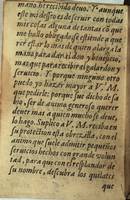 mano herecido deuo. Y aunque
este mi desseo es seruir con todas
mis cosas, alguna de tantas co que
me hallo obligado se estiende a que
rer estar lo mas de quien alarga la
mano para dar el don y beneficio,
mas que para recebir el galardon y
seruicio. Y porque ninguno otro
puedo yo hazer mayor a V. M.
que pedirle; porque fue dicho de sa
bio, ser de animo generoso querer
deuer mas a quien mucho deue, assi
lo hago. Suplico a V. M. reciba en
su protection esta obrezilla, con el
animo que suele admitir pequeños
seruicios hechos con grande volun
tad, para que con el resplandor de
su nombre, descubra los quilates
que